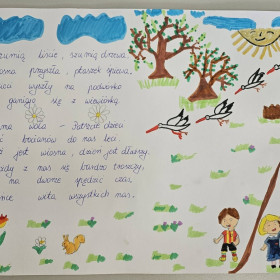 szumią liście, szumią drzewa,
wiosna przyszła, ptaszek śpiewa,
wyszły na podwórko
się z wiewiórką
woła - Patrzcie dzieci
bocianów do nas leci,
jest wiosna, dzień jest dłuższy,
z nas się bardzo
na dworze spędzić czas,
wita wszystkich nas.